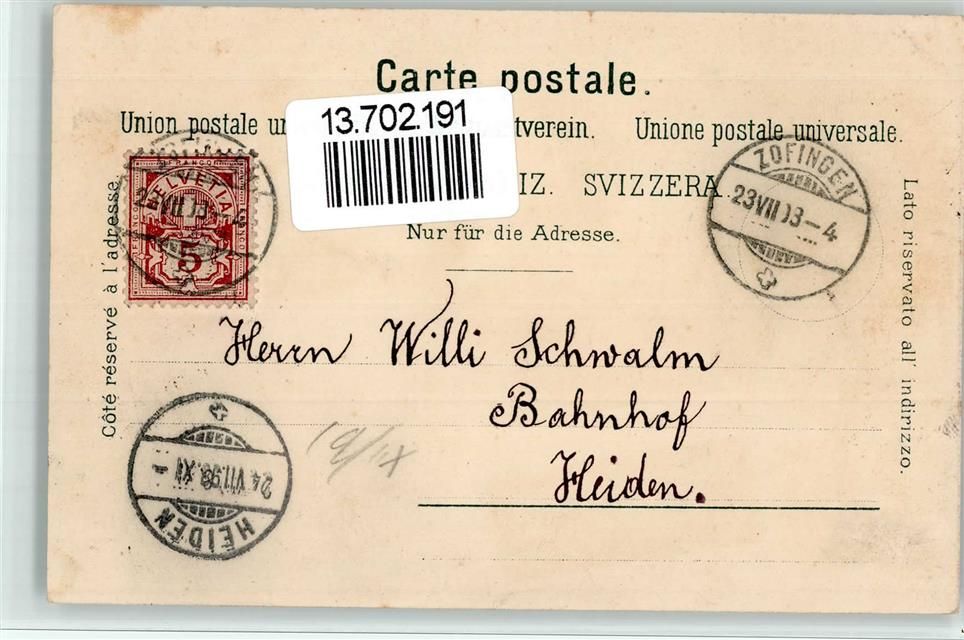 Carte postale.
13.702.191
Union postale un tverein. Unione postale universale.
IZ. SVIZZERA
Nur für die Adresse.
Côté réservé à l'adresse
Lato riservato all' indirizzo.
FRANCO
HELVETIA
5
ZOFINGEN
23 VII 03–4
Herrn Willi Schwalm
Bahnhof
Heiden.
HEIDEN